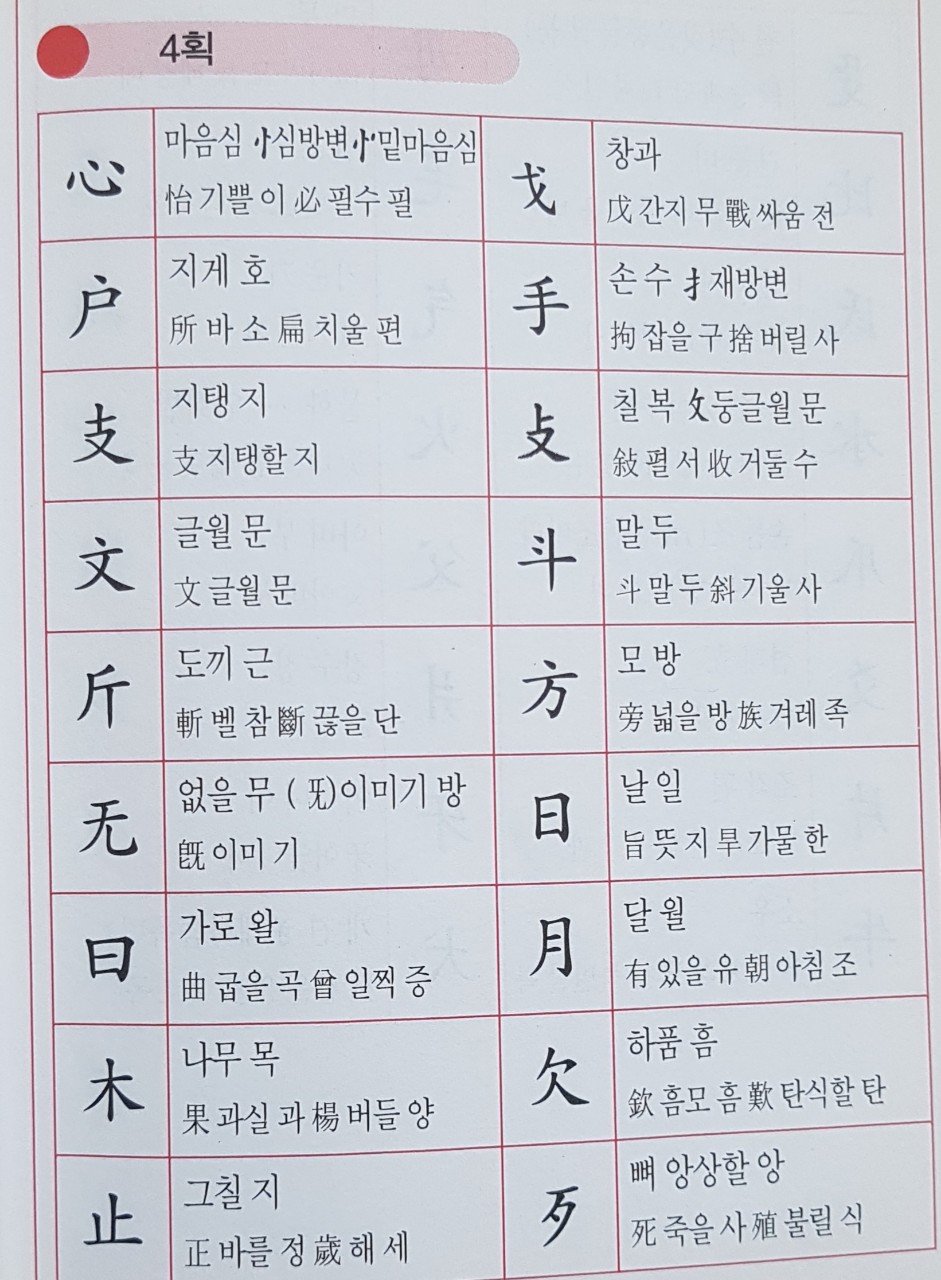 4획
心
마음심 忄심방변 㣺밑마음심
怡 기쁠 이 必 필수 필
戈
창과
戊 간지 무 戰 싸움 전
户
지게 호
所 바 소 扁 치울 편
手
손 수 扌재방변
拘 잡을 구 捨 버릴 사
支
지탱 지
支 지탱할 지
攴
칠 복 攵둥글월 문
敍 펼 서 收 거둘 수
文
글월 문
文 글월 문
斗
말 두
斗 말 두 斜 기울 사
斤
도끼 근
斬 벨 참 斷 끊을 단
方
모 방
旁 넓을 방 族 겨레 족
无
없을 무 ( 旡)이미기 방
旣 이미 기
日
날 일
旨 뜻 지 旱 가물 한
曰
가로 왈
曲 굽을 곡 曾 일찍 증
月
달 월
有 있을 유 朝 아침 조
木
나무 목
果 과실 과 楊 버들 양
欠
하품 흠
欽 흠모 흠 歎 탄식할 탄
止
그칠 지
正 바를 정 歲 해 세
歹
뼈 앙상할 앙
死 죽을 사 殖 불릴 식